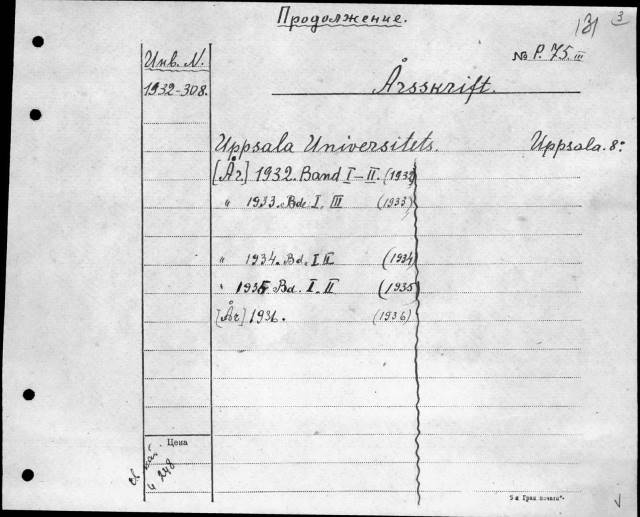 Продолжение.
131 3
Инв. N.
№ P. 75. III
1932-308.
Årsskrift.
Uppsala Universitets. Uppsala. 8:
[År] 1932. Band I–II. (1932)
" 1933. Bd. I. III (1933)
" 1934. Bd. I. II (1934)
" 1935. Bd. I. II (1935)
[År] 1936. (1936)
Цена
248